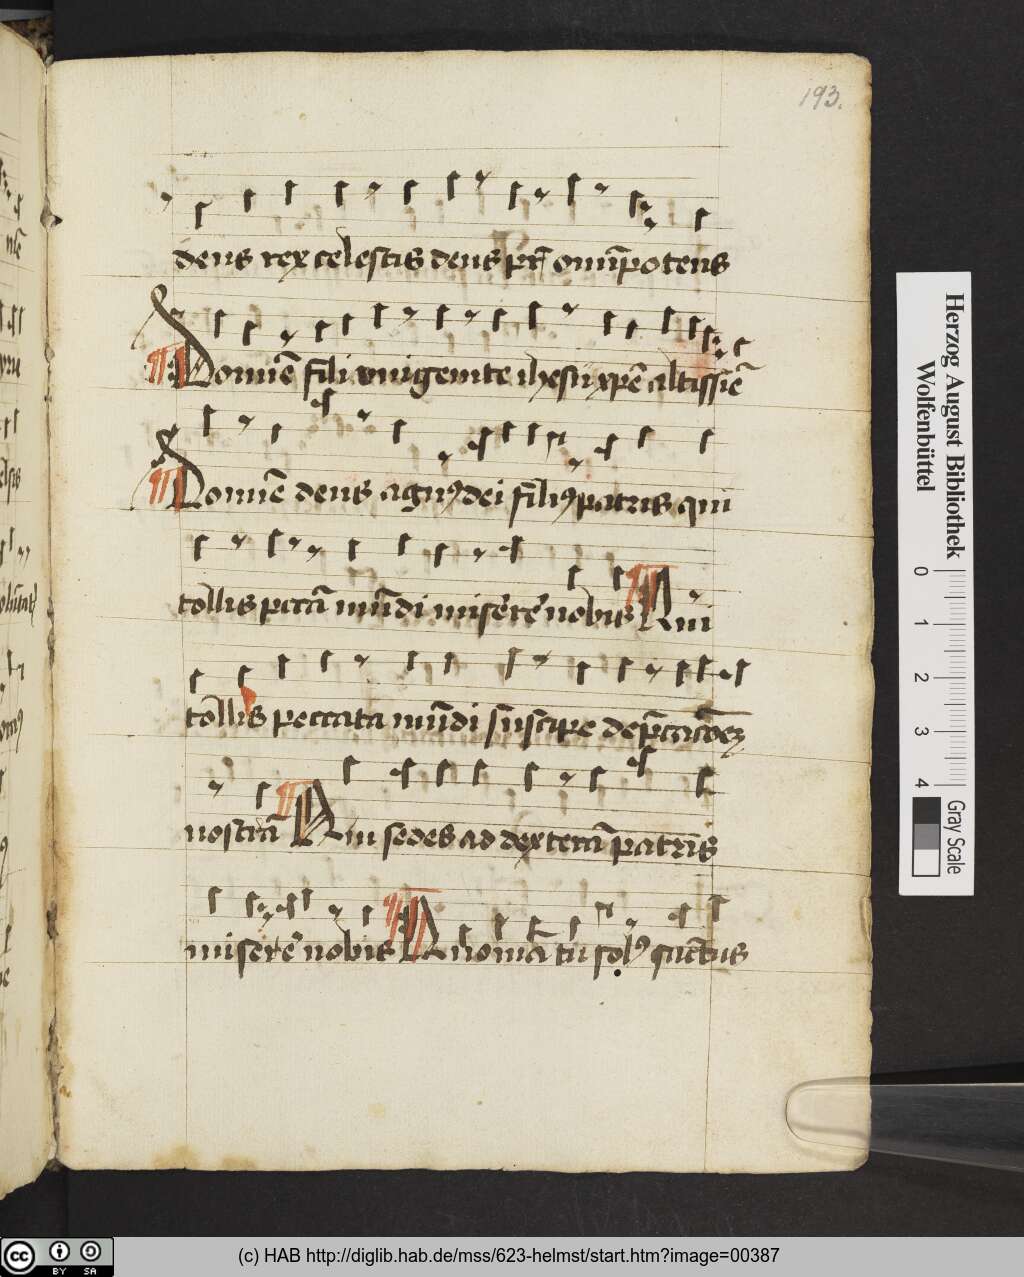 193.
deus rex celestis deus pr̄ om̄īpotens
Domīe fili vnigenite ihesu xp̄e altissīe
Domīe deus agnꝰ dei filiꝰ patris qui
tollis pccā mūdi miserē nobis Qui
tollis peccata mūdi suscipe dep̄cac̄oeꝫ
nostrā Qui sedes ad dexterā patris
miserē nobis Qm̄ tu solꝰ sāctus
Herzog August Bibliothek
Wolfenbüttel
0 1 2 3 4
Gray Scale
cc BY SA
(c) HAB http://diglib.hab.de/mss/623-helmst/start.htm?image=00387